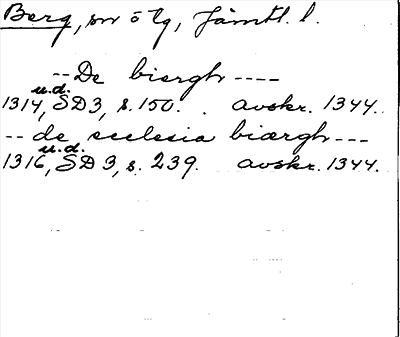 Berg, sn o tg, Jämtl. l.
-- De biergh ----
u.d.
1314, SD3, s. 150. avskr. 1344.
-- de ecclesia biærgh ---
u.d.
1316, SD 3, s. 239. avskr. 1344.